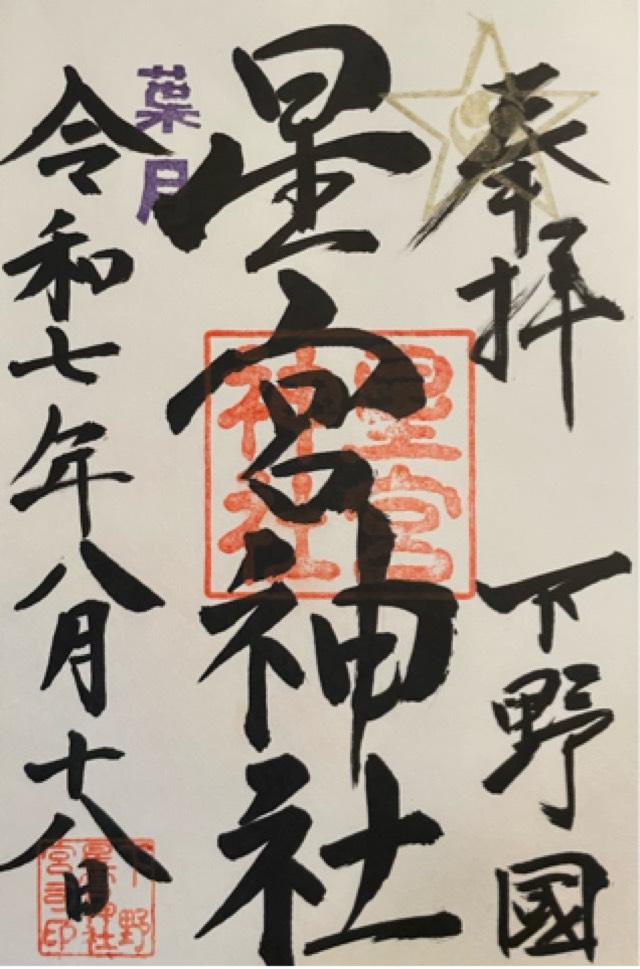 奉拝
下野國
星宮神社
星宮
神社
葉月
令和七年八月十八日
下野
星宮神社
宮司印